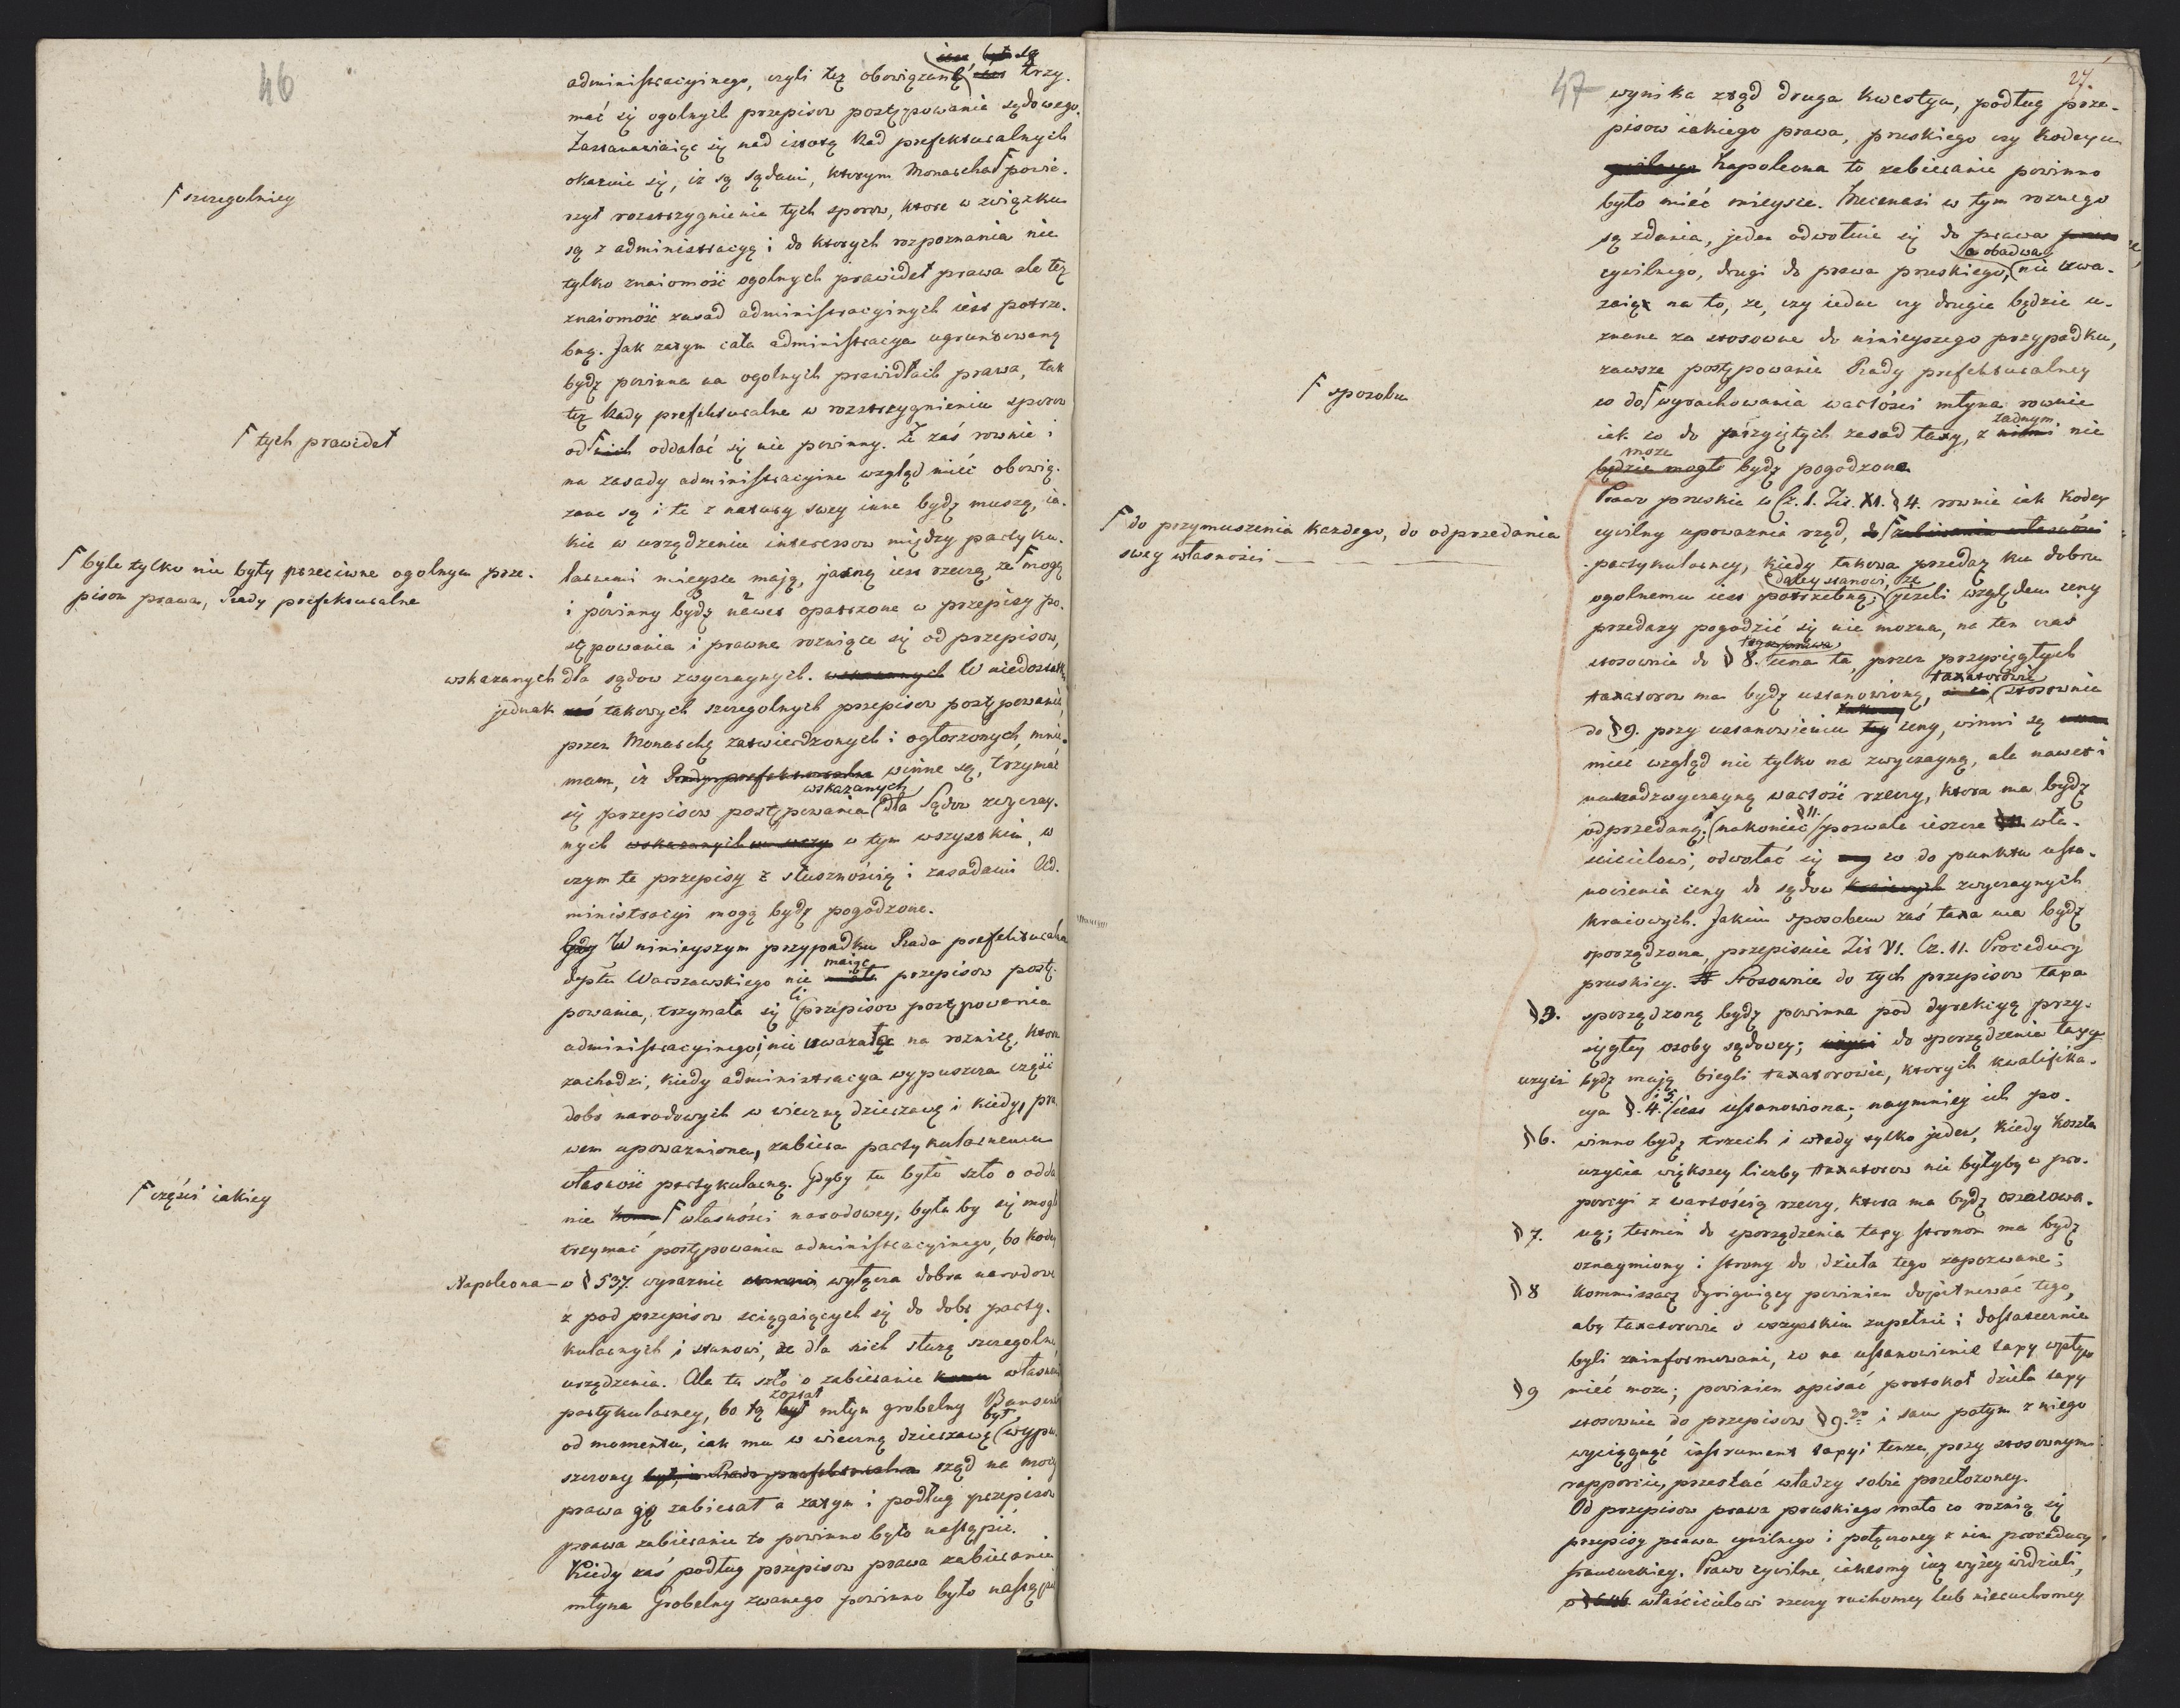 46
są
administracyinego, czyli też obowiązane trzy-
mać się ogolnych przepisow postępowania sądowego.
Zastanawiaiąc się nad istotą Rad prefekturalnych
okazuie się, iż są sądami, ktorym Monarcha powie-
szczegolniey
rzył rozstrzygnienie tych sporow, ktore w związku
są z administracyą i do ktorych rozpoznania nie
tylko znaiomość ogolnych prawideł prawa ale też
znaiomość zasad administracyinych iest potrze-
bną. Jak zatym cała administracya ugruntowaną
bydź powinna na ogolnych prawidłach prawa, tak
też Rady prefekturalne w rozstrzygnieniu sporow
tych prawideł
od nich oddalać się nie powinny. Że zaś rownie i
na zasady administracyine wzgląd mieć obowią-
zane są i te z natury swey inne bydź muszą, ia-
kie w urządzeniu interessow między partyku-
byle tylko nie były przeciwne ogolnym prze-
pisom prawa, Rady prefekturalne
larnemi mieysce mają, jasną iest rzeczą, że mogą
i powinny bydź nawet opatrzone w przepisy po-
stępowania i prawne rożniące się od przepisow,
wskazanych dla sądow zwyczaynych. wskazanych W niedostatku
jednak zaś takowych szczegolnych przepisow postępowania,
przez Monarchę zatwierdzonych i ogłoszonych, mnie-
mam, iż Rady prefekturalne winne są, trzymać
wskazanych
się przepisow postępowania dla Sądow zwyczay-
nych w tym wszystkim, w
czym te przepisy z słusznością i zasadami Ad-
ministracyi mogą bydź pogodzone.
Gdy W ninieyszym przypadku Rada prefekturalna
maiąc
deptu Warszawskiego nie przepisow postę-
li
powania, trzymała się przepisow postępowania
administracyinego, nie uważaiąc na rożnicę, ktora
zachodzi, kiedy administracya wypuszcza część
dobr narodowych w wieczną dzierzawę i kiedy, pra-
wem upoważniona, zabiera partykularnemu
własność partykularną. Gdyby tu było szło o odda-
części iakiey
nie własności narodowey, była by się mogła
trzymać postępowania administracyinego, bo kodex
Napoleona w § 537. wyraznie wyłącza dobra narodowe
z pod przepisow sciągaiących się do dobr party-
kularnych i stanowi, że dla nich służą szczegolne
urządzenia. Ale tu szło o zabieranie własności
został
partykularney, bo tą był młyn grobelny
był
od momentu, iak mu w wieczną dzierzawę wypu-
szczony rząd na mocy
prawa go zabierał a zatym i podług przepisow
prawa zabieranie to powinno było nastąpić.
Kiedy zaś podług przepisow prawa zabieranie
młyna Grobelny zwanego powinno było nastąpić
47
27.
wynika ztąd druga kwestya, podług prze-
pisow iakiego prawa, pruskiego czy kodexu
Napoleona to zabieranie powinno
było mieć mieysce. Mecenasi w tym rożnego
są zdania, jeden odwołuie się do prawa
a obadway
cywilnego, drugi do prawa pruskiego, nie uwa-
żaiąc na to, że, czy iedne czy drugie będzie u-
znane za stosowne do ninieyszego przypadku,
zawsze postępowanie Rady prefekturalney
sposobu
co do wyrachowania wartości młyna rownie
żadnym
iak co do przyiętych zasad taxy, z nie
może
będzie mogło bydź pogodzone
Prawo pruskie w Cz. I. Tit. XI. § 4. rownie iak kodex
do przymuszenia każdego, do odprzedania
swey własności
cywilny upoważnia rząd, do zabierania własności
partykularney, kiedy takowa przedaż ku dobru
daley stanowi, że
ogolnemu iest potrzebną; jeżeli względem ceny
przedaży pogodzić się nie można, na ten czas
tego prawa
stosownie do § 8. cena ta, przez przysięgłych
taxatorowie
taxatorow ma bydź ustanowioną, stosownie
do § 9. przy ustanowieniu tey ceny, winni są
mieć wzgląd nie tylko na zwyczayną, ale nawet i
nadzwyczayną wartość rzeczy, ktora ma bydź
§ 11.
odprzedaną; nakoniec pozwala ieszcze wła-
scicielowi, odwołać się co do punktu usta-
nowienia ceny do sądow zwyczaynych
kraiowych. Jakim sposobem zaś taxa ma bydź
sporządzona, przepisuie Tit VI. Cz. II. Procedury
pruskiey. Stosownie do tych przepisow taxa
§ 3. sporządzoną bydź powinna pod dyrekcyą przy-
sięgłey osoby sądowey; do sporządzenia taxy
użyci bydź mają biegli taxatorowie, ktorych kwalifika-
i 5.
cya §. 4. iest ustanowiona; naymniey ich po-
§ 6. winno bydź trzech i wtedy tylko jeden, kiedy koszta
użycia większey liczby taxatorow nie byłyby w pro-
porcyi z wartością rzeczy, ktora ma bydź oszacowa-
§ 7. ną; termin do sporządzenia taxy stronom ma bydź
oznaymiony i strony do dzieła tego zapozwane;
§ 8 Kommissarz dyriguiący powinien dopilnować tego,
aby taxatorowie o wszystkim zupełnie i dostatecznie
byli zainformowani, co na ustanowienie taxy wpływ
§ 9 mieć może; powinien spisać protokoł dzieła taxy
stosownie do przepisow § 9.go i sam potym z niego
wyciągnąć instrument taxy i tenże, przy stosownym
rapporcie, przesłać władzy sobie przełożoney.
Od przepisow prawa pruskiego mało co rożnią się
przepisy prawa cywilnego i połączoney z nim procedury
francuskiey. Prawo cywilne, iakesmy iuż wyżey widzieli,
właścicielowi rzeczy ruchomey lub nieruchomey